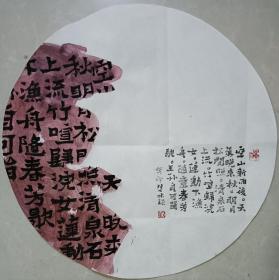 空
天晚来
秋明月松間照清泉石
上流竹喧歸浣女蓮動
下漁舟隨春芳歇
自可留
空山新雨後天
氣晚来秋明月
松間照清泉石
上流竹喧歸浣
女蓮動下漁
舟隨意春芳
歇王孫自可留